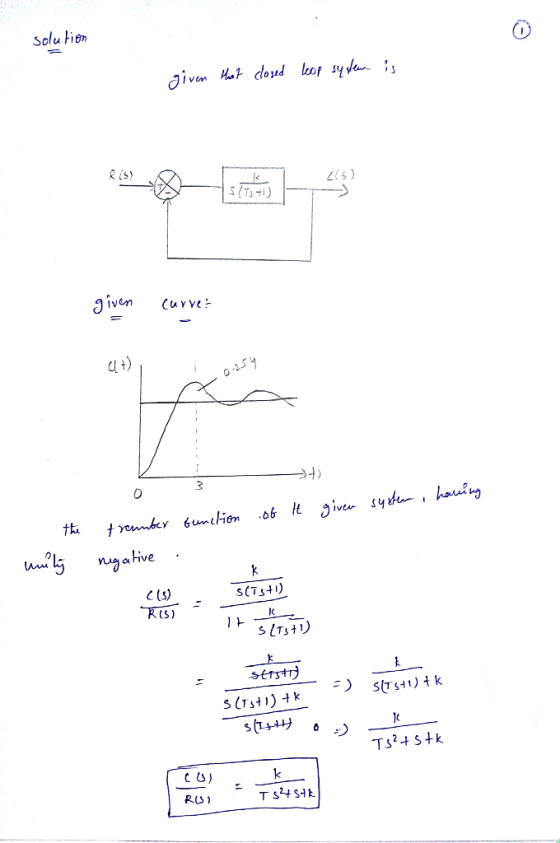 ①
solution
given that closed loop system is
R(s)
+
-
k
S(Ts+1)
C(s)
given curve:-
C(t)
0.254
0
3
t)
the trensber bunction .ob the given system, having
unity negative .
C(s)/R(s) = k/S(Ts+1) / 1+ k/S(Ts+1)
= k/S(Ts+1) / S(Ts+1)+k/S(Ts+1) => k/S(Ts+1)+k
=> k/Ts²+s+k
C(s)/R(s) = k/Ts²+s+k